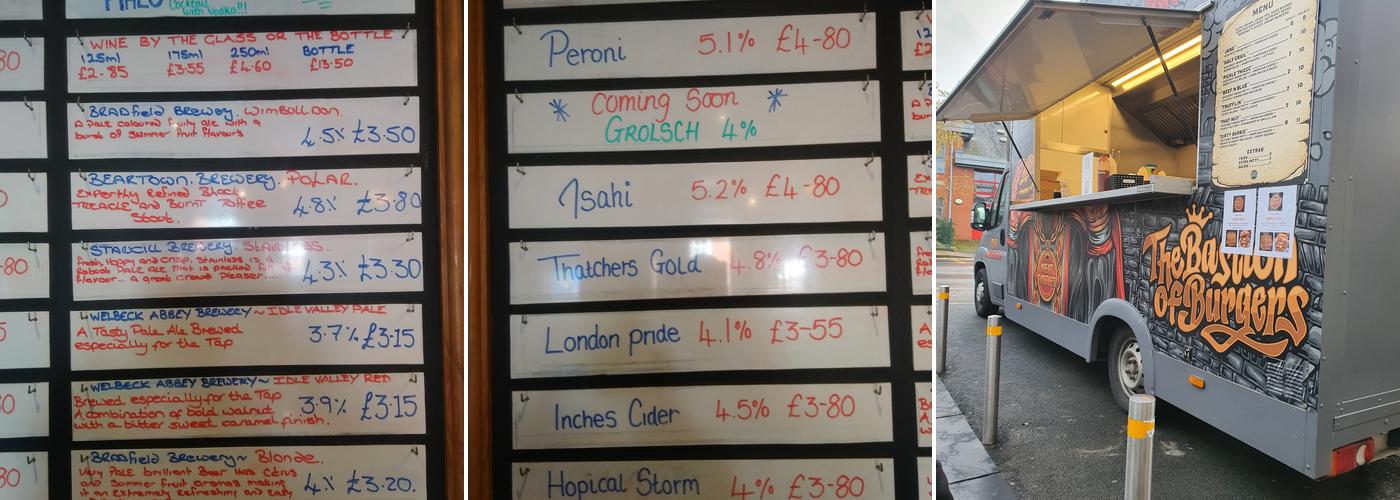 Cocktail
with Vodka!!!
WINE BY THE GLASS OR THE BOTTLE
125ml 175ml 250ml BOTTLE
£2.85 £3.55 £4.60 £13.50
BRADfield BREWERY. WIMBOLLDON.
A Pale coloured fruity ale with a
burst of Summer fruit flavours
4.5% £3.50
BEARTOWN. BREWERY. POLAR.
Expertly Refined Black
TREACLE and BURNT Toffee
Stout.
4.8% £3.80
STANCILL BREWERY. STAINLESS.
fresh hoppy and crisp, Stainless is a
Robust PALE ALE that is packed full of
flavour... A great crowd Pleaser
4.3% £3.30
WELBECK ABBEY BREWERY ~ IDLE VALLEY PALE
A Tasty Pale Ale Brewed
especially for the Tap
3.7% £3.15
WELBECK ABBEY BREWERY ~ IDLE VALLEY RED
Brewed especially for the Tap
A combination of bold walnut
with a bitter sweet caramel finish.
3.9% £3.15
BRADFIELD BREWERY ~ Blonde.
Very Pale brilliant Beer Has Citrus
and Summer fruit aromas making
it an Extremely Refreshing and easy
4% £3.20.
Peroni 5.1% £4-80
Coming Soon
GROLSCH 4%
Asahi 5.2% £4-80
Thatchers Gold 4.8% £3-80
London pride 4.1% £3-55
Inches Cider 4.5% £3-80
Hopical Storm 4% £3-80
MENU
"JANE"
"HOLY GRAIL"
"PICKLE THICC"
"BEEF N BLUE"
"TRUFFLIN"
"PHAT NUT"
"DIRTY BARBIE"
EXTRAS
FRIES
EXTRA PATTY
BACON
MEAT
The Bastion
of Burgers